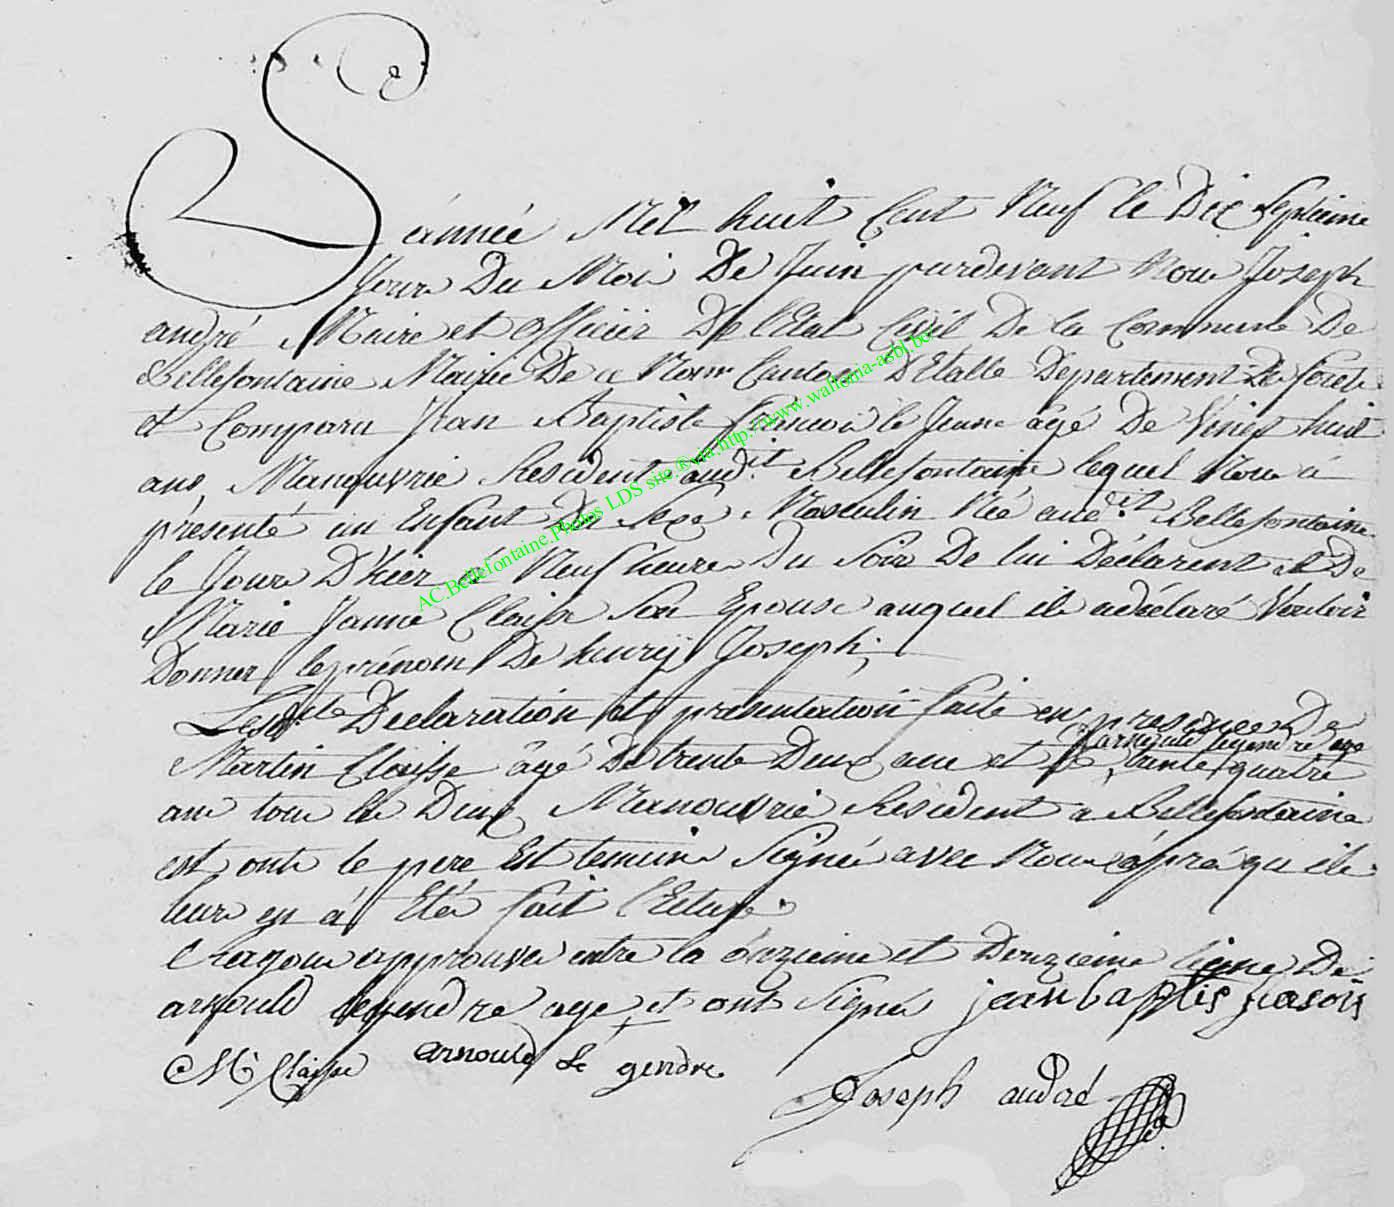 L'année Mil huit Cent Neuf le Dix Septieme
Jour Du Moi De Juin pardevant Nou Joseph
andré Maire et officier De l'Etat Civil De la Commune De
Bellefontaine Mairie De Canton D'Etalle Département De foret
et Comparu Jean Baptiste le Jeune âgé De Vingt huit
ans Manouvrié Résident aud.it Bellefontaine lequel Nou à
présenté un Enfant De Sexe Masculin Né aud.it Bellefontaine
le Jour D'hier à Neuf heure Du Soir De lui Déclarent et De
Marie Janne Claisse Son Epouse auquel il a déclaré Vouloir
Donner le prénom De henrÿ Joseph;
Lesd.te Declaration et présentation faite en presence De
arnould legendre age
Martin Claisse âgé De trente Deux ans et De trente quatre
an tou le Deux Manouvrié Résident a Bellefontaine
est onts le pere Est temoin Signé avec Nou après qu il
leur en à Eté fait l'Ecture.
approuvé entre la onzieme et Douzieme ligne De
arnould legendre age et ont Signés jean baptis frasois
M Claisse arnould le gendre
Joseph andré
AC.Bellefontaine.Photos LDS site.®via.http://www.wallonia-asbl.be/